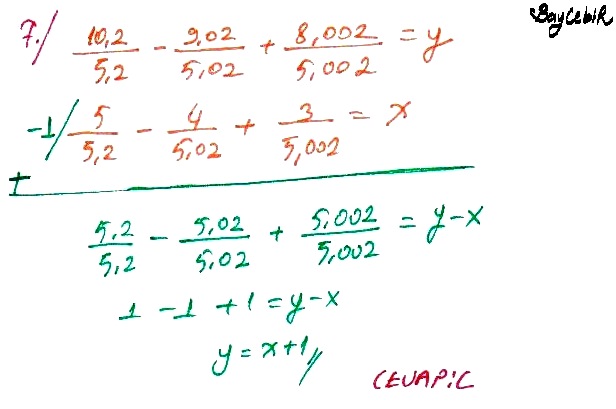 BayCebiR
7./ 10,2/5,2 - 9,02/5,02 + 8,002/5,002 = y
-1/ 5/5,2 - 4/5,02 + 3/5,002 = x
+
5,2/5,2 - 5,02/5,02 + 5,002/5,002 = y-x
1 -1 +1 = y-x
y = x+1//
CEVAP:C